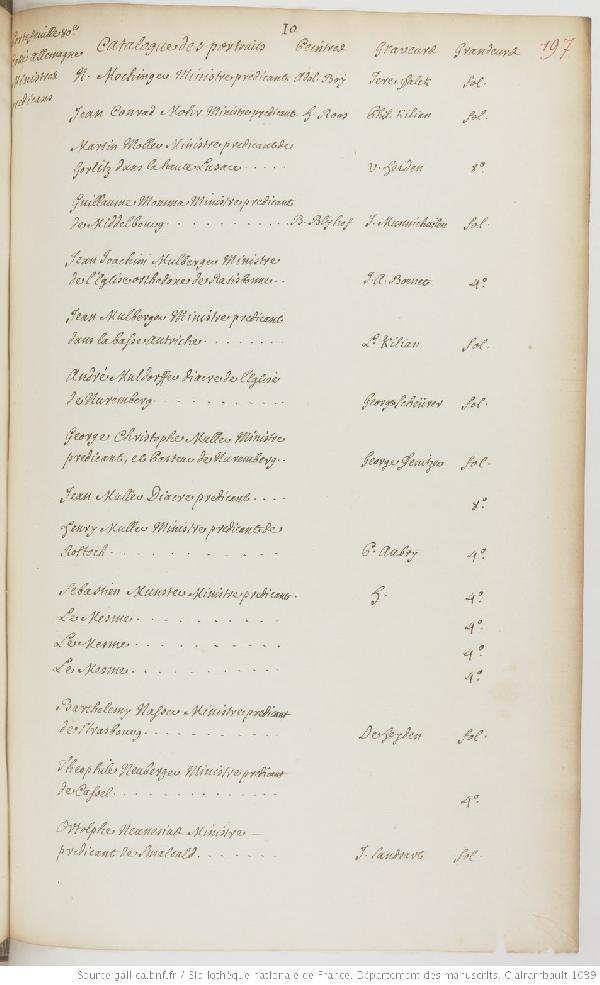 10
197
Portefeuille 80.
Allemagne
Ministres
predicans
Catalogue des portraits Peintres Graveurs Grandeurs
N. Mochinger Ministre predicant Adol. Boÿ Jere. Falck fol.
Jean Conrad Mohr Ministre predicant H. Roos Phil. Kilian fol.
Martin Moller Ministre predicant de
Gorlitz dans la haute Lusace . . . . . v. Heiden 8º
Guillaume Momma Ministre predicant
de Middelbourg . . . . . . . . . . . B. Blÿhof J. Munnichuisen fol.
Jean Joachim Mulberger Ministre
de l'Eglise orthodoxe de Ratisbonne . . J. A. Boener 4º.
Jean Mulberger Ministre predicant
dans la basse autriche . . . . . . . L. Kilian fol.
André Muldorffer diacre de l'Eglise
de Nuremberg . . . . . . . . . . . George Scheürer fol.
George Christophe Muller Ministre
predicant, et Pasteur de Nuremberg . . George Fenitzer fol.
Jean Muller Diacre predicant . . . . 8º.
Henry Muller Ministre predicant de
Rostoch . . . . . . . . . . . . . P. Aubry 4º.
Sebastien Munster Ministre predicant . H. 4º.
Le Mesme . . . . . . . . . . . 4º.
Le Mesme . . . . . . . . . . . 4º.
Le Mesme . . . . . . . . . . . 4º.
Barthelemy Nasser Ministre predicant
de Strasbourg . . . . . . . . . . De Heyden fol.
Theophile Neuberger Ministre predicant
de Cassel . . . . . . . . . . . . 4º.
Ministre
predicant de Smalcald . . . . . . J. Sandrart fol.
Source gallica.bnf.fr / Bibliothèque nationale de France. Département des manuscrits. Clairambault 1039